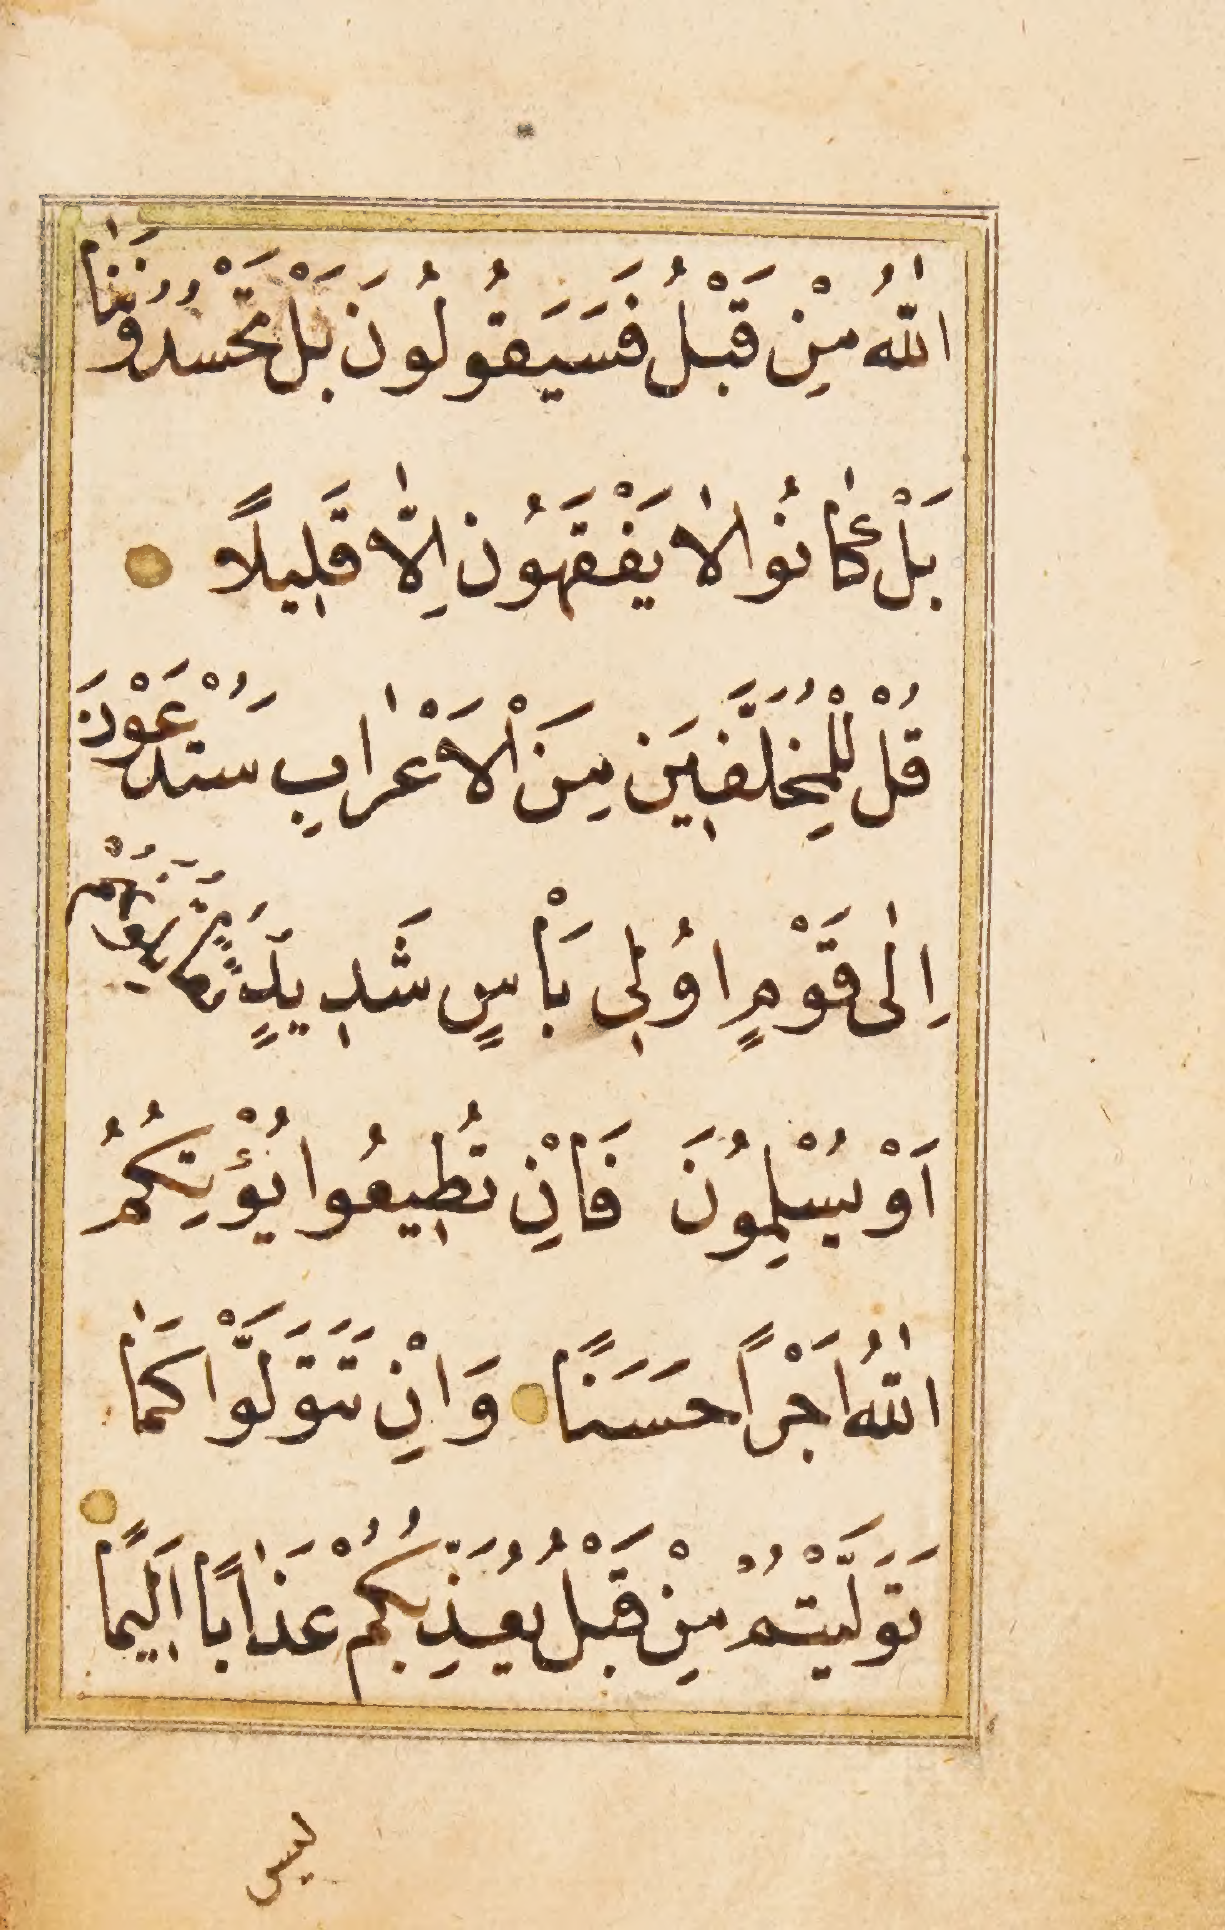 اللّٰهُ مِنْ قَبْلُ فَسَيَقُولُونَ بَلْ تَحْسُدُونَنَا
بَلْ كَانُوا لَا يَفْقَهُونَ اِلَّا قَلِيلًا
قُلْ لِلْمُخَلَّفِينَ مِنَ الْاَعْرَابِ سَتُدْعَوْنَ
اِلٰى قَوْمٍ اُولِى بَأْسٍ شَدِيدٍ تُقَاتِلُونَهُمْ
اَوْ يُسْلِمُونَ فَاِنْ تُطِيعُوا يُؤْتِكُمُ
اللّٰهُ اَجْرًا حَسَنًا وَاِنْ تَتَوَلَّوْا كَمَا
تَوَلَّيْتُمْ مِنْ قَبْلُ يُعَذِّبْكُمْ عَذَابًا اَلِيمًا
ليس